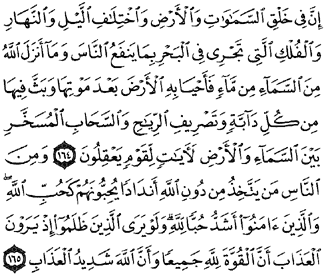 إِنَّ فِي خَلْقِ السَّمَاوَاتِ وَالْأَرْضِ وَاخْتِلَافِ اللَّيْلِ وَالنَّهَارِ
وَالْفُلْكِ الَّتِي تَجْرِي فِي الْبَحْرِ بِمَا يَنفَعُ النَّاسَ وَمَا أَنزَلَ اللَّهُ
مِنَ السَّمَاءِ مِن مَّاءٍ فَأَحْيَا بِهِ الْأَرْضَ بَعْدَ مَوْتِهَا وَبَثَّ فِيهَا
مِن كُلِّ دَابَّةٍ وَتَصْرِيفِ الرِّيَاحِ وَالسَّحَابِ الْمُسَخَّرِ
بَيْنَ السَّمَاءِ وَالْأَرْضِ لَآيَاتٍ لِّقَوْمٍ يَعْقِلُونَ ١٦٤ وَمِنَ
النَّاسِ مَن يَتَّخِذُ مِن دُونِ اللَّهِ أَندَادًا يُحِبُّونَهُمْ كَحُبِّ اللَّهِ ۖ
وَالَّذِينَ ءَامَنُوا أَشَدُّ حُبًّا لِّلَّهِ ۗ وَلَوْ يَرَى الَّذِينَ ظَلَمُوا إِذْ يَرَوْنَ
الْعَذَابَ أَنَّ الْقُوَّةَ لِلَّهِ جَمِيعًا وَأَنَّ اللَّهَ شَدِيدُ الْعَذَابِ ١٦٥